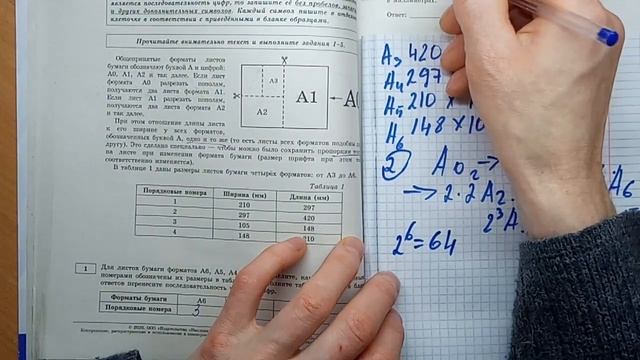 является последовательность цифр, то запишите её без пробелов,
и других дополнительных символов. Каждый символ пишите в
клеточке в соответствии с приведёнными в бланке образцами.
Прочитайте внимательно текст и выполните задания 1–5.
Общепринятые форматы листов
бумаги обозначают буквой А и цифрой:
А0, А1, А2 и так далее. Если лист
формата А0 разрезать пополам,
получаются два листа формата А1.
Если лист А1 разрезать пополам,
получаются два листа формата А2
и так далее.
А3
А2
А1
При этом отношение длины листа
к его ширине у всех форматов,
обозначенных буквой А, одно и то же (то есть листы всех форматов подобны
другу). Это сделано специально — чтобы можно было сохранить пропорции
на листе при изменении формата бумаги (размер шрифта при этом
соответственно изменяется).
В таблице 1 даны размеры листов бумаги четырёх форматов: от А3 до А6.
Таблица 1
Порядковые номера Ширина (мм) Длина (мм)
1 210 297
2 297 420
3 105 148
4 148 210
1
Для листов бумаги форматов А6, А5, А4
номерами обозначены их размеры в
ответов перенесите последовательность
Форматы бумаги А6
Порядковые номера 3
Ответ:
А3 420
А4 297
А5 210 ×
А6 148 × 10
2 А0 →
→ 2·2 А2
А6
2³ А
2⁶ = 64